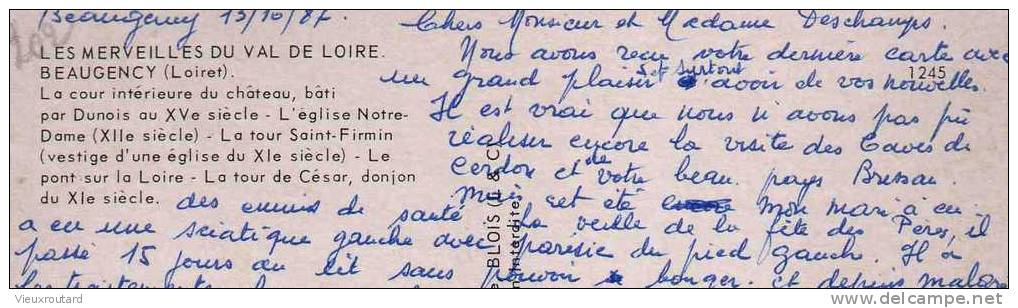 Beaugency 13/10/87. Chers Monsieur et Madame Deschamps.
LES MERVEILLES DU VAL DE LOIRE.
BEAUGENCY (Loiret).
1245
La cour intérieure du château, bâti
par Dunois au XVe siècle - L'église Notre-
Dame (XIIe siècle) - La tour Saint-Firmin
(vestige d'une église du XIe siècle) - Le
pont sur la Loire - La tour de César, donjon
du XIe siècle.
Nous avons reçu votre dernière carte avec
un grand plaisir et surtout d'avoir de vos nouvelles.
Il est vrai que nous n'avons pas pu
réaliser encore la visite des Caves de
Cerdon et de votre beau pays Bressan.
Mais cet été mon mari a eu
des ennuis de santé la veille de la fête des Pères, il
a eu une sciatique gauche avec parésie du pied gauche. Il a
passé 15 jours au lit sans pouvoir bouger. et depuis malgré
les traitements
BLOIS
interdite
Vieuxroutard
delcampe.net